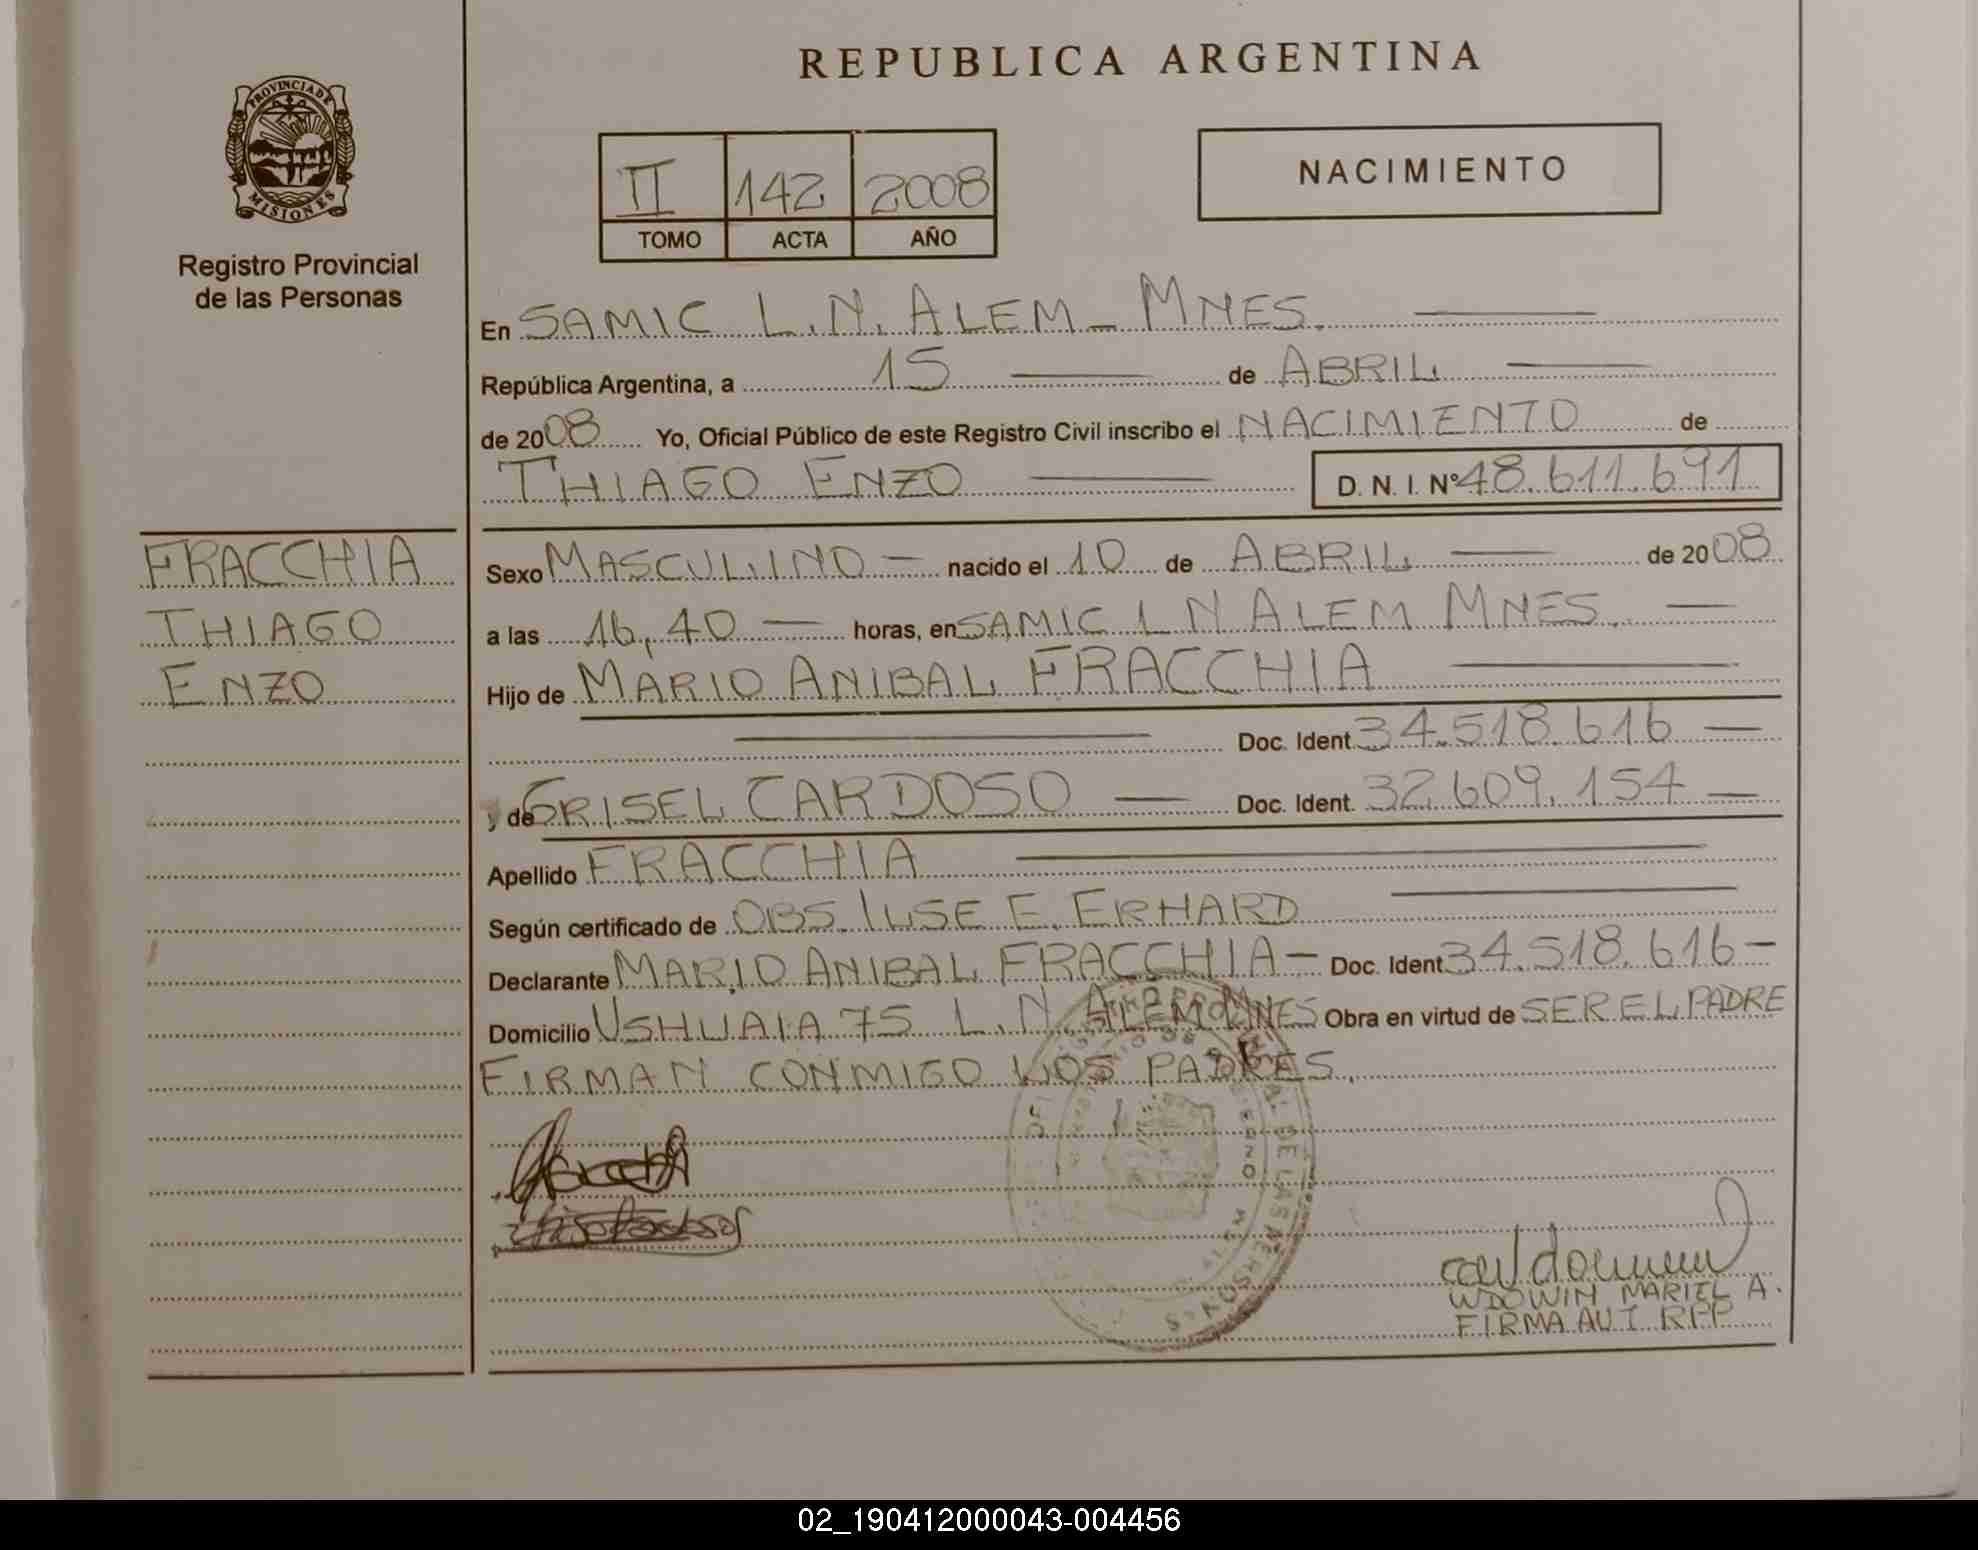 REPUBLICA ARGENTINA
PROVINCIA DE
MISIONES
Registro Provincial
de las Personas
II 142 2008
TOMO ACTA AÑO
NACIMIENTO
En SAMIC L.N. ALEM - MNES.
República Argentina, a 15 de ABRIL
de 2008 Yo, Oficial Público de este Registro Civil inscribo el NACIMIENTO de
THIAGO ENZO D. N. I. Nº 48.611.691
FRACCHIA
THIAGO
ENZO
Sexo MASCULINO - nacido el 10 de ABRIL de 2008
a las 16,40 horas, en SAMIC L N ALEM MNES.
Hijo de MARIO ANIBAL FRACCHIA
Doc. Ident. 34.518.616 -
y de GRISEL CARDOSO - Doc. Ident. 32.609.154 -
Apellido FRACCHIA
Según certificado de OBS. ILSE E. ERHARD
Declarante MARIO ANIBAL FRACCHIA - Doc. Ident. 34.518.616 -
Domicilio USHUAIA 75 L.N. ALEM MNES Obra en virtud de SER EL PADRE
FIRMAN CONMIGO LOS PADRES.
DE LAS PERSONAS
WDOWIN MARIEL A.
FIRMA AUT RPP
02_190412000043-004456